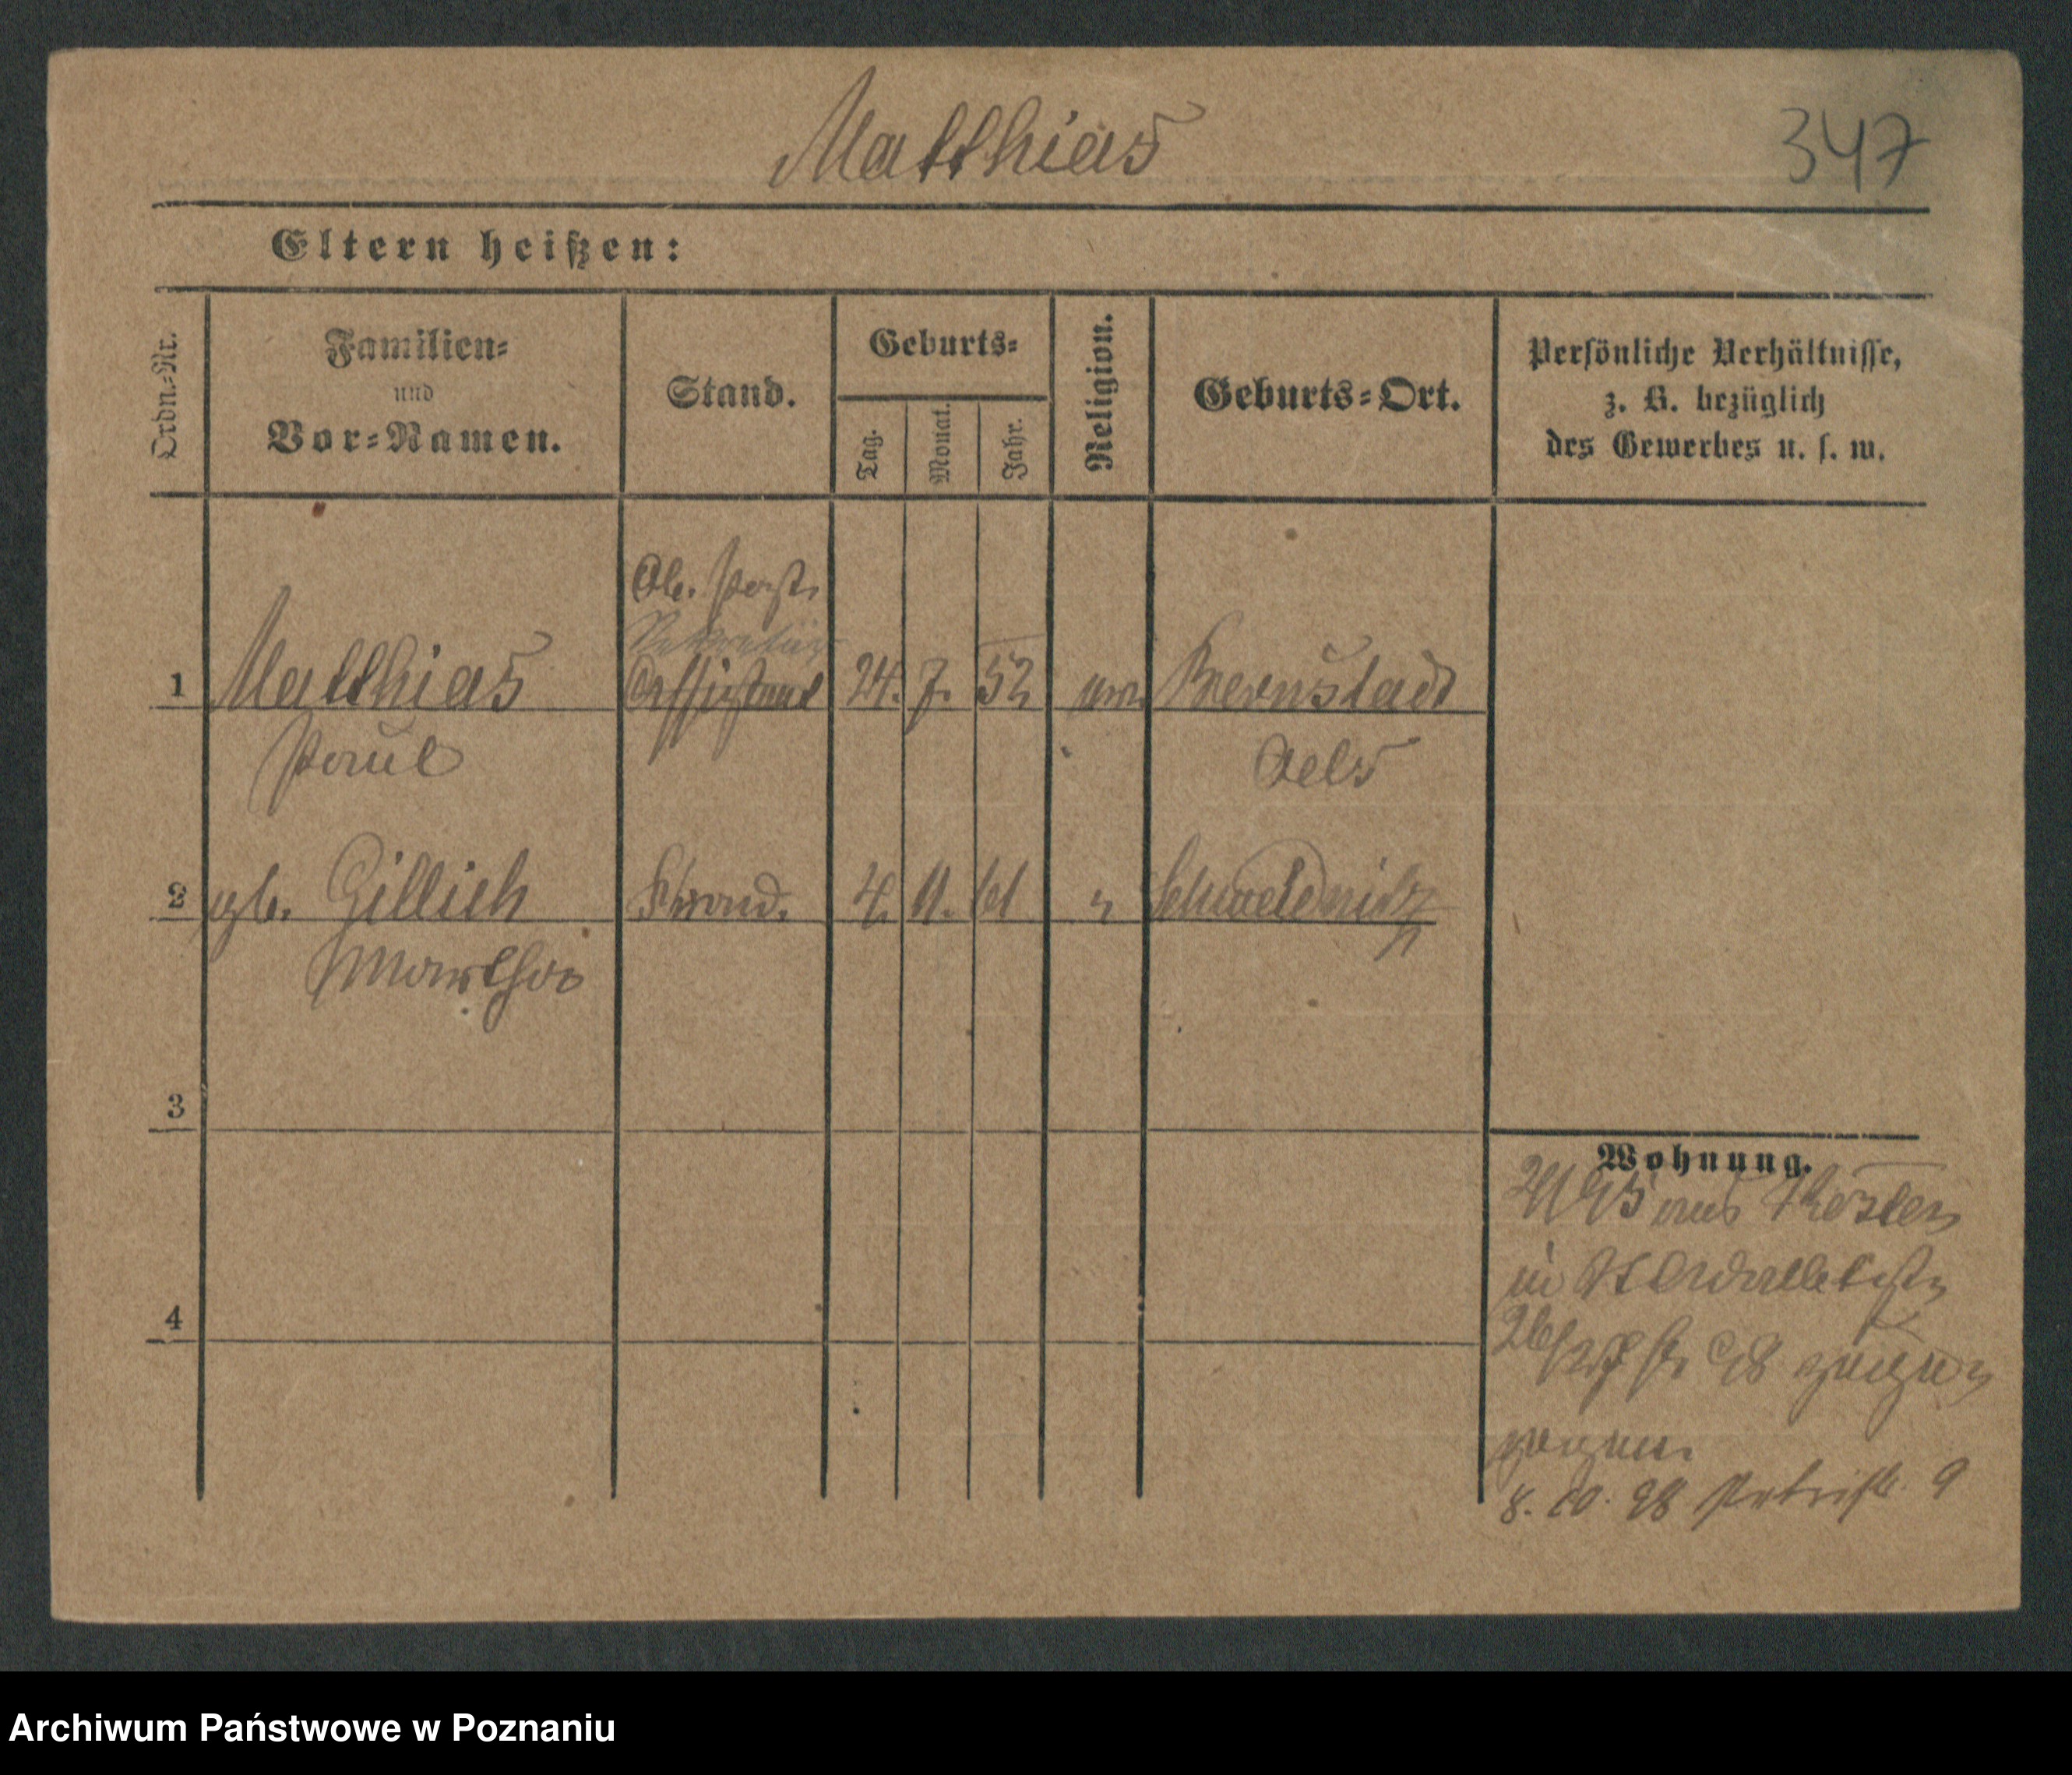 Matthias
347
Eltern heißen:
Ordn.-Nr.
Familien-
und
Vor-Namen.
Stand.
Geburts-
Tag.
Monat.
Jahr.
Religion.
Geburts-Ort.
Persönliche Verhältnisse,
z. B. bezüglich
des Gewerbes u. s. w.
Ob. Post
Sekretär
1 Matthias Assistent 24. 7. 52 Bernstadt
Paul Oels
2 gb. Gillich 4. 61 Schweidnitz
Martha
3
Wohnung.
aus
in
4
98
8. 10. 98 Petristr. 9
Archiwum Państwowe w Poznaniu